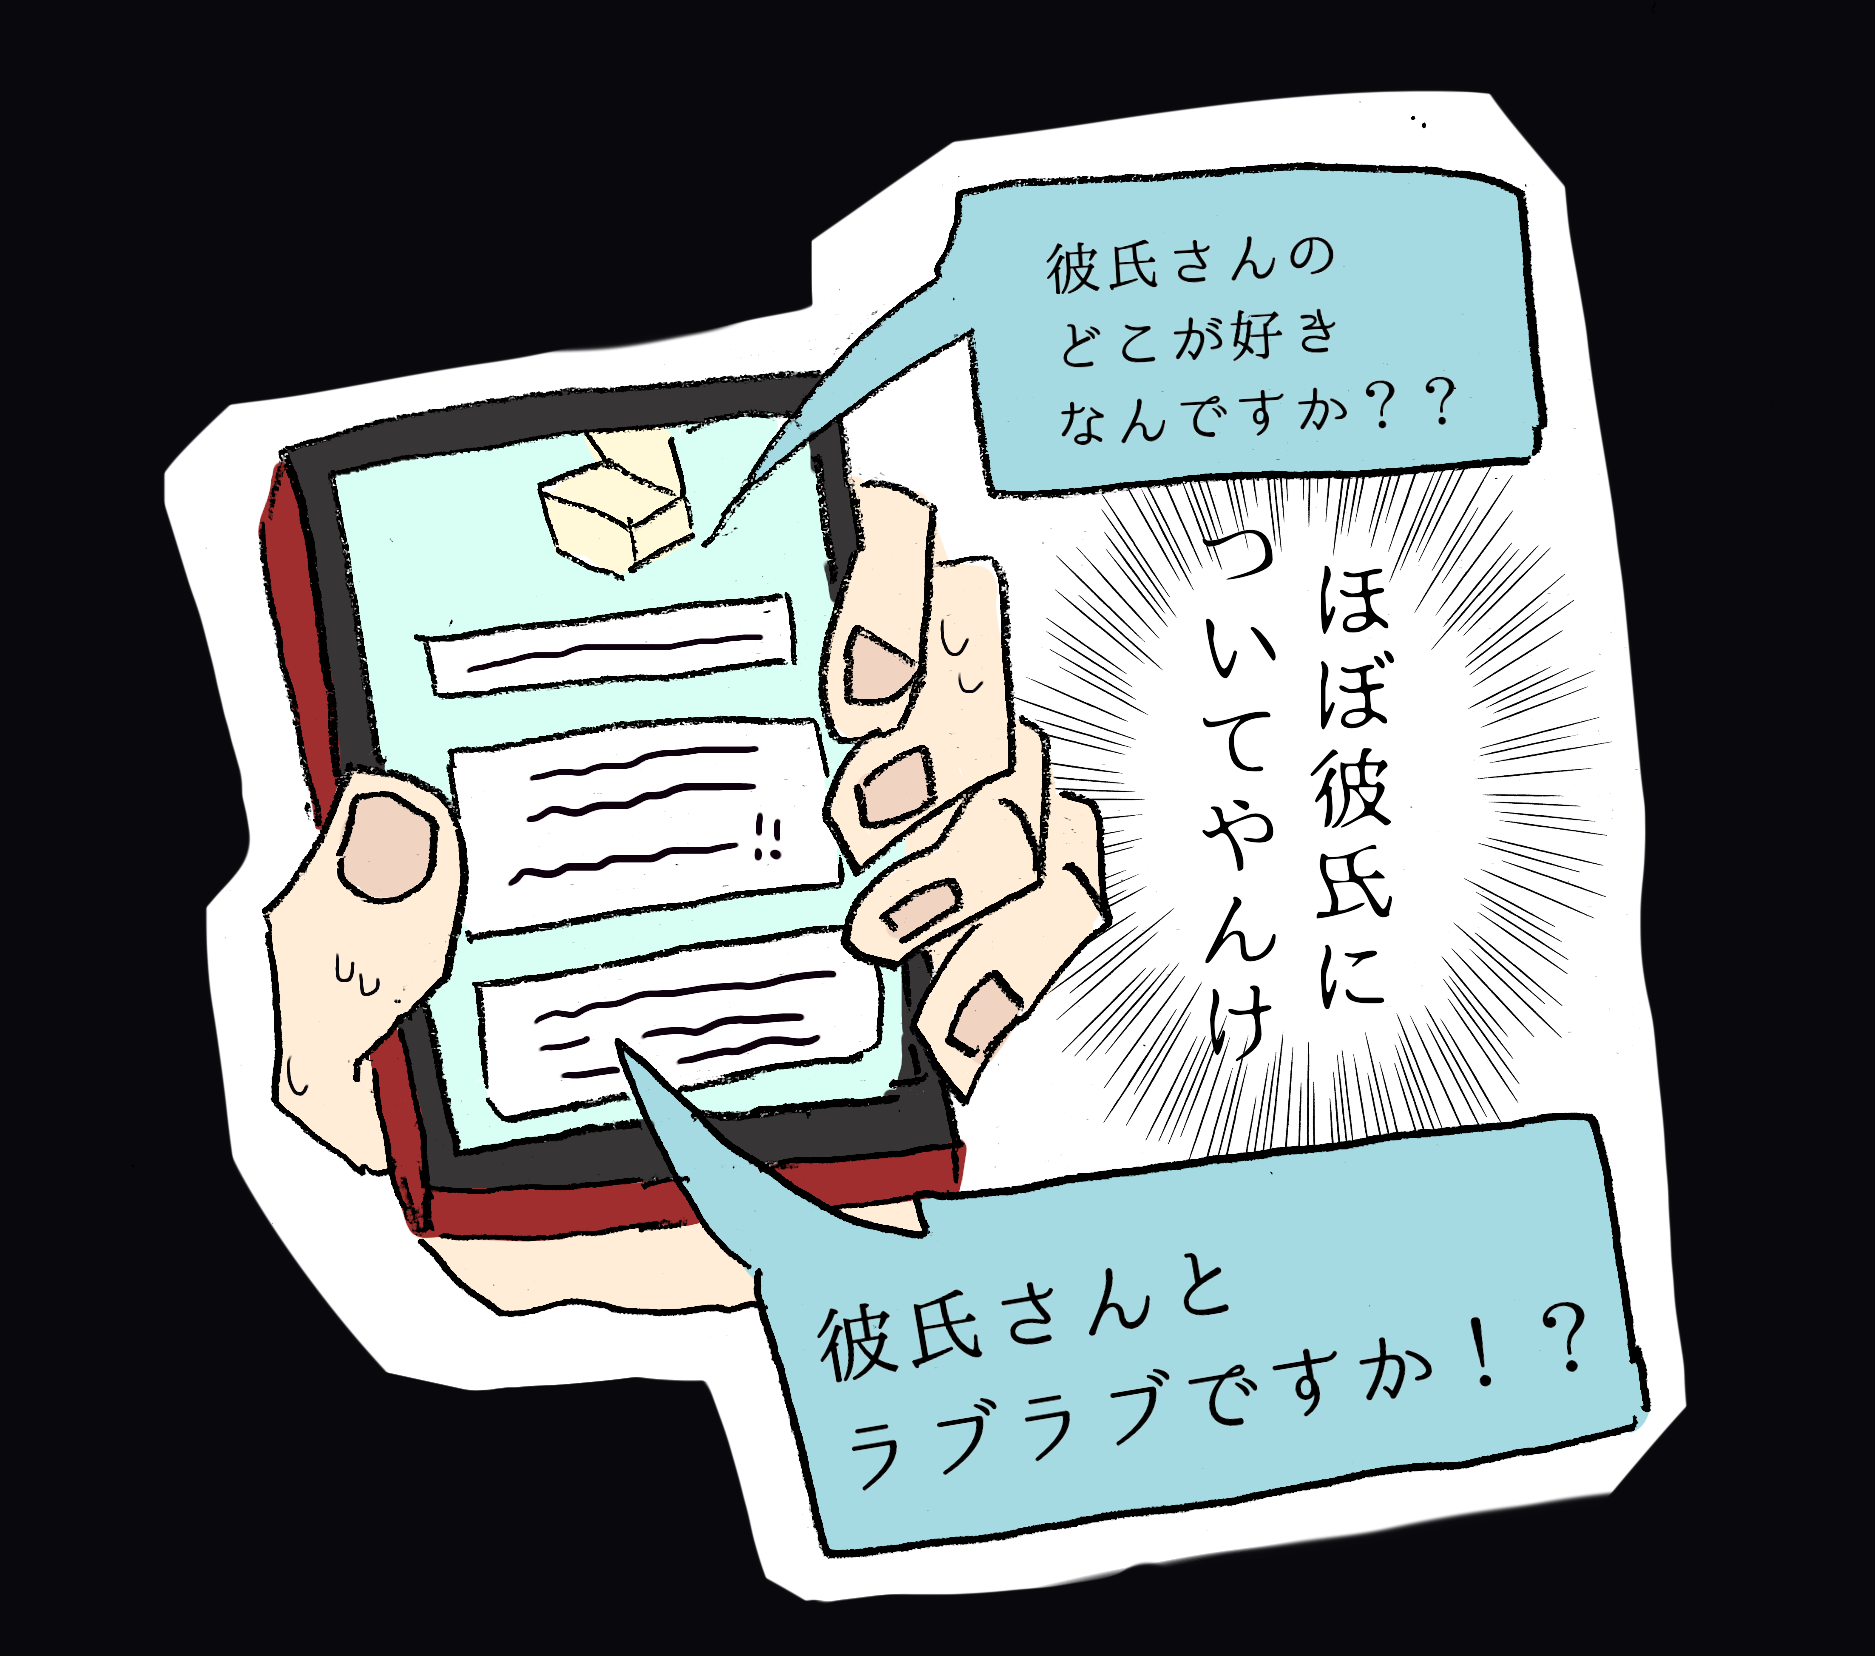 彼氏さんの
どこが好き
なんですか？？
ほぼ彼氏に
ついてやんけ
彼氏さんと
ラブラブですか！？
!!